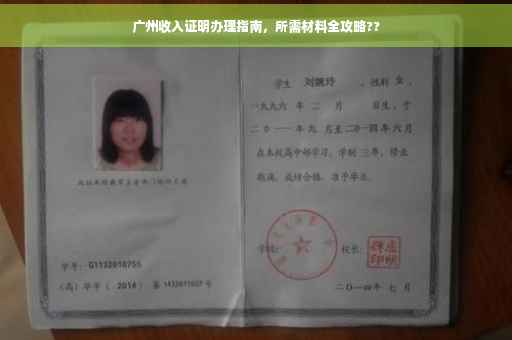 广州收入证明办理指南，所需材料全攻略??
学生 刘婉玲 ，性别 女 ，
一九九六 年 二 月 日生，于
二〇一一 年 九 月至 二〇一四 年 六 月
在本校高中部学习，学制 三 年，修业
期满，成绩合格，准予毕业。
学号：G1132010755
(高) 毕字 ( 2014 ) 第 1432011027 号
学校：
校长：
二〇一四年 七 月